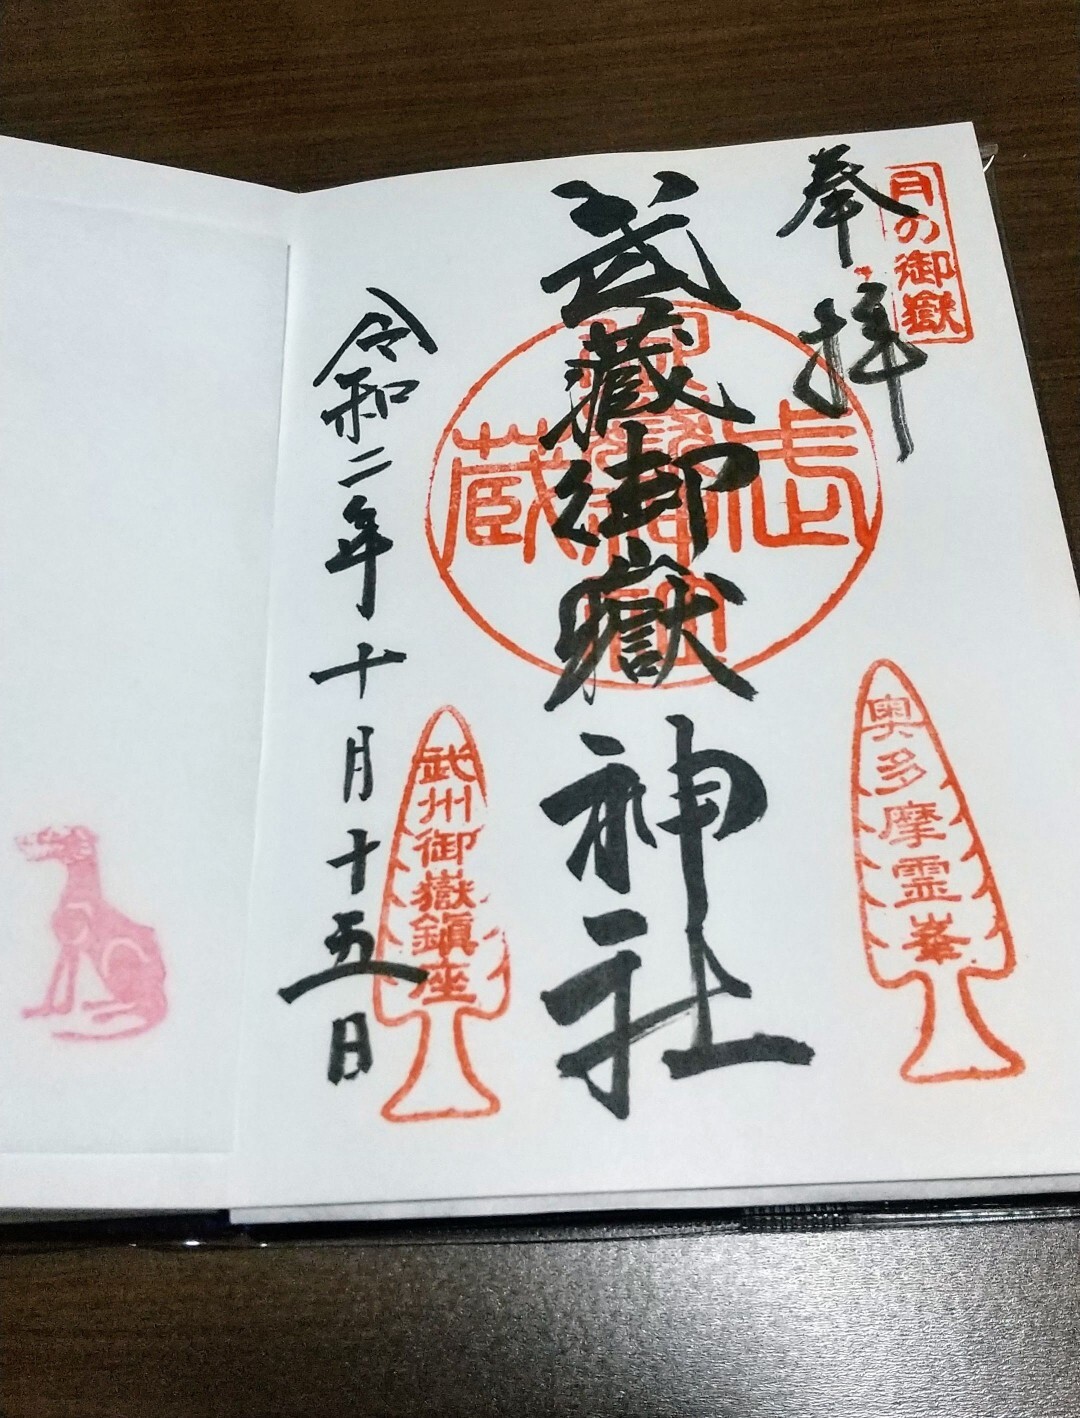 月の御嶽
奉拝
奥多摩霊峯
武蔵御嶽神社
武蔵
武州御嶽鎮座
令和二年十月十五日